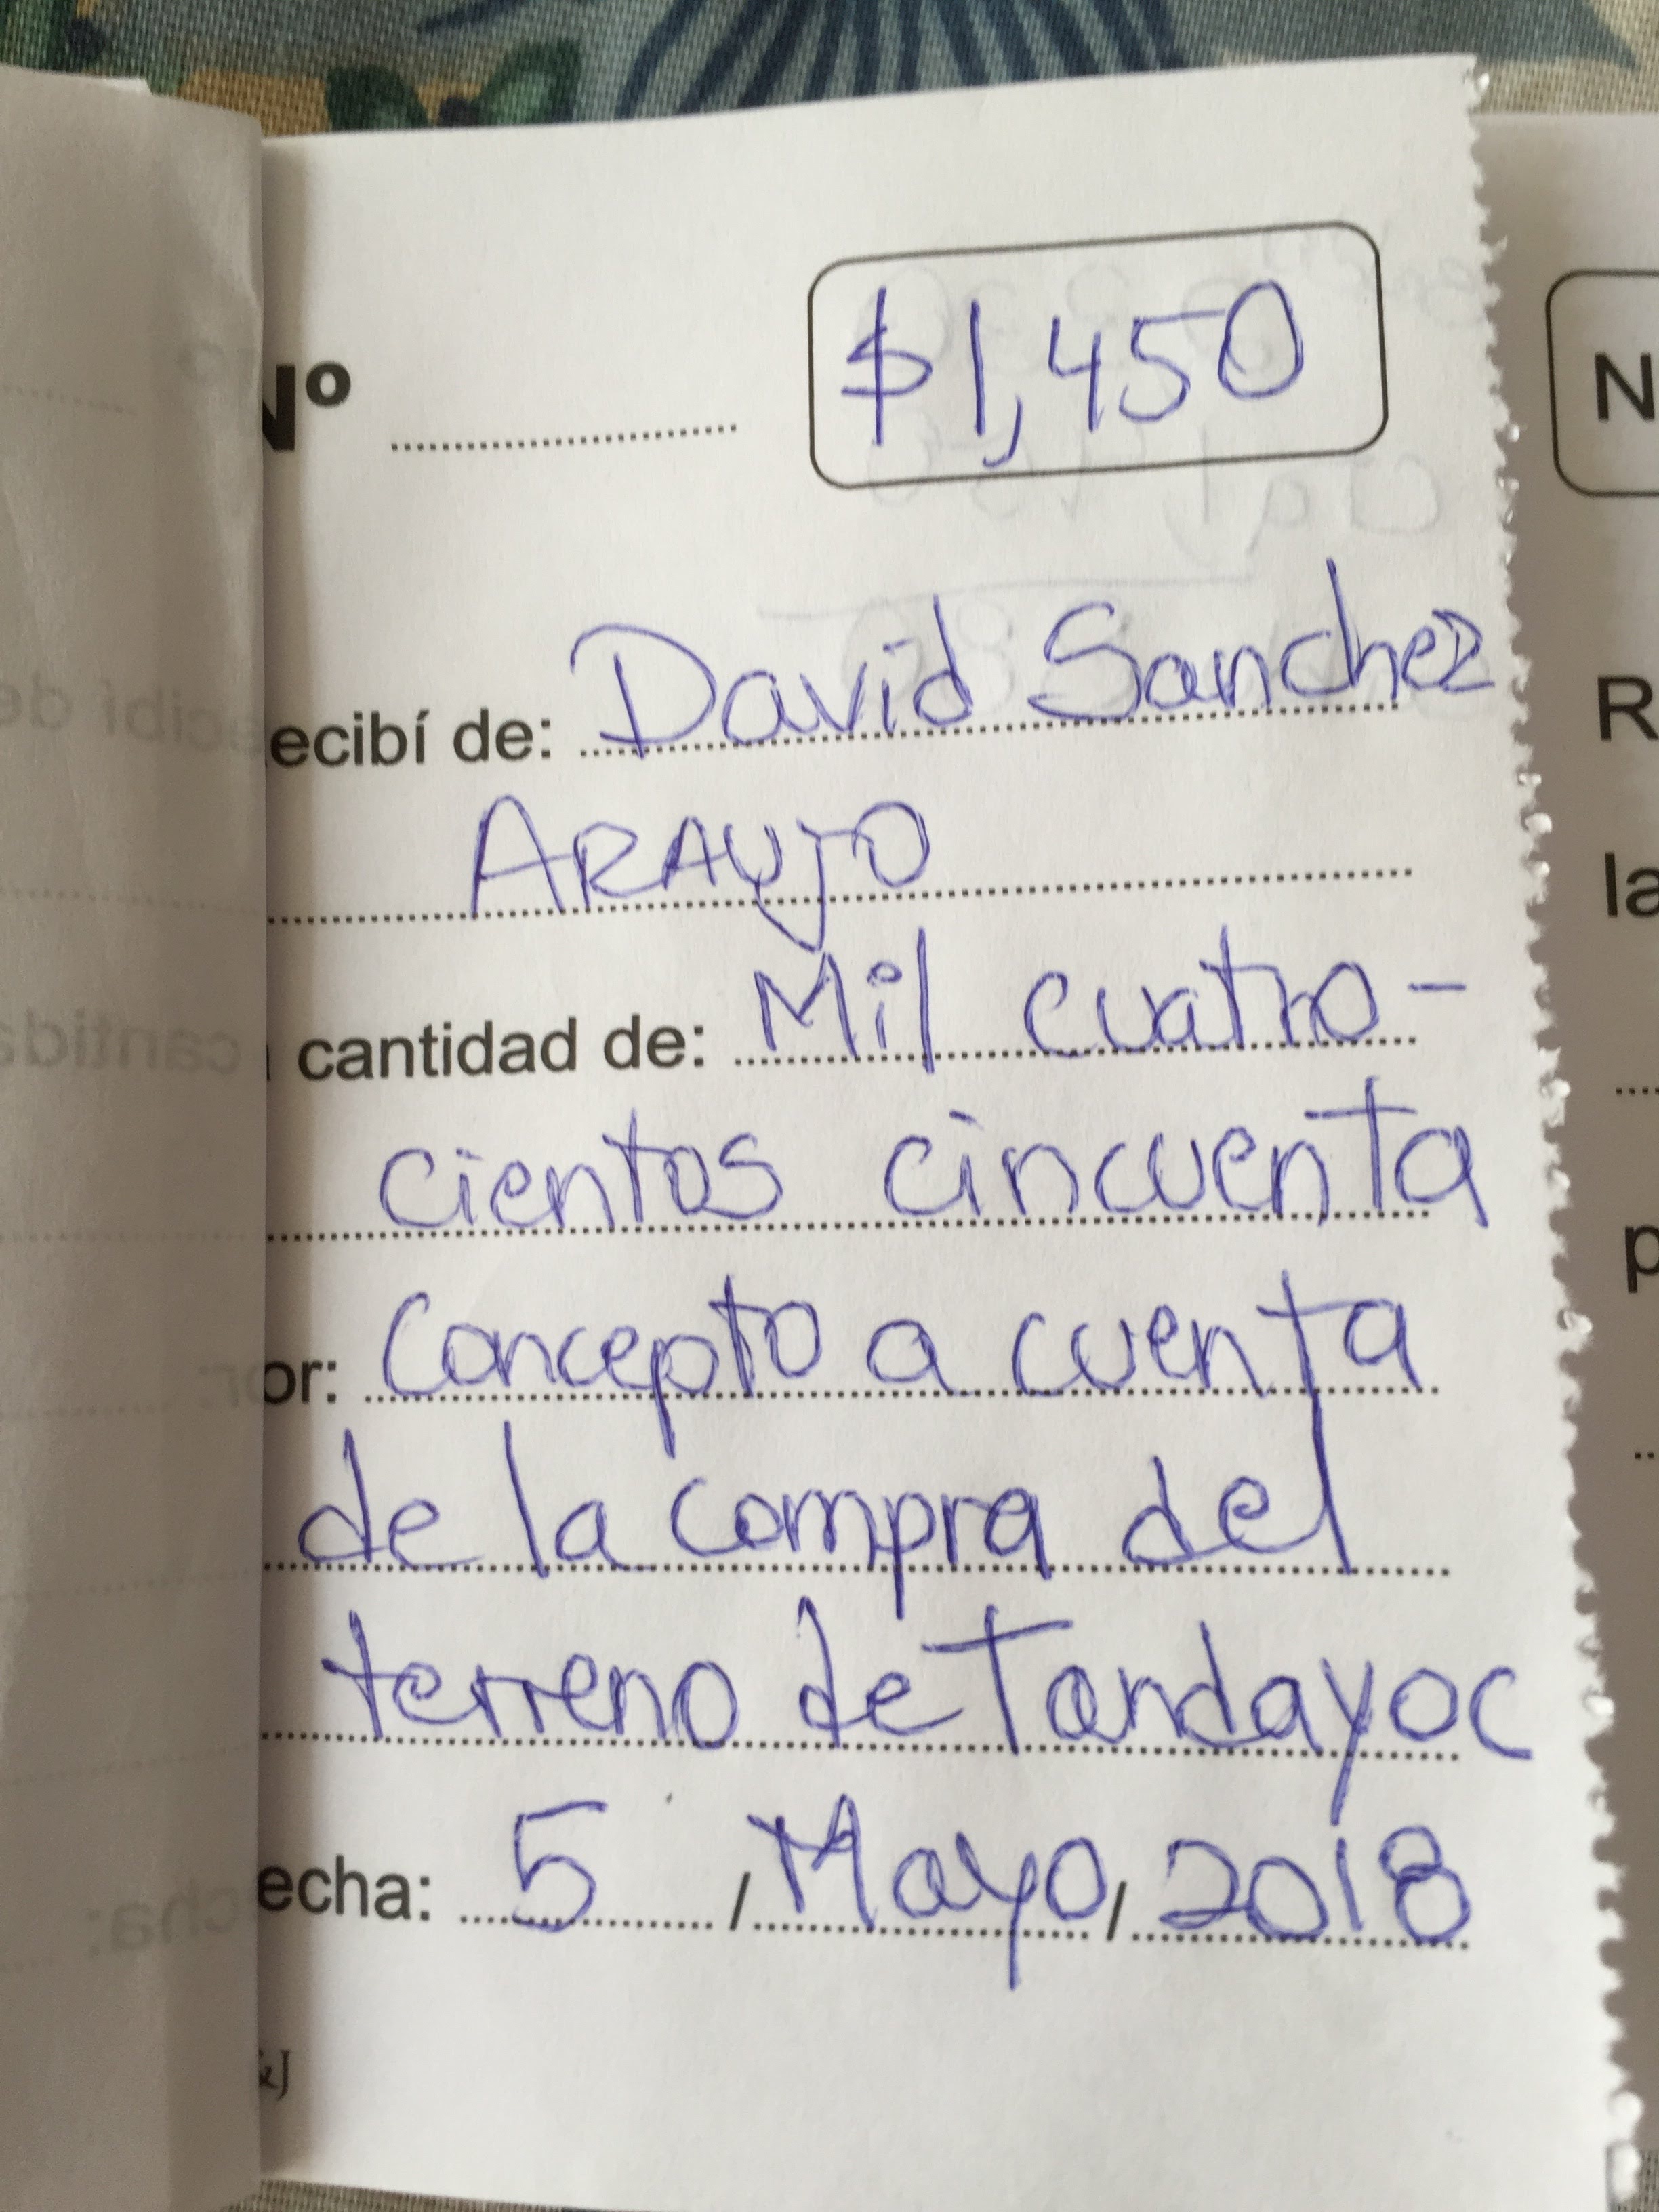 Nº $1,450
ecibí de: David Sanchez
ARAUJO
cantidad de: Mil cuatro-
cientos cincuenta
or: Concepto a cuenta
de la compra del
terreno de Tandayoc
echa: 5 / Mayo / 2018
&J
N
R
la
p